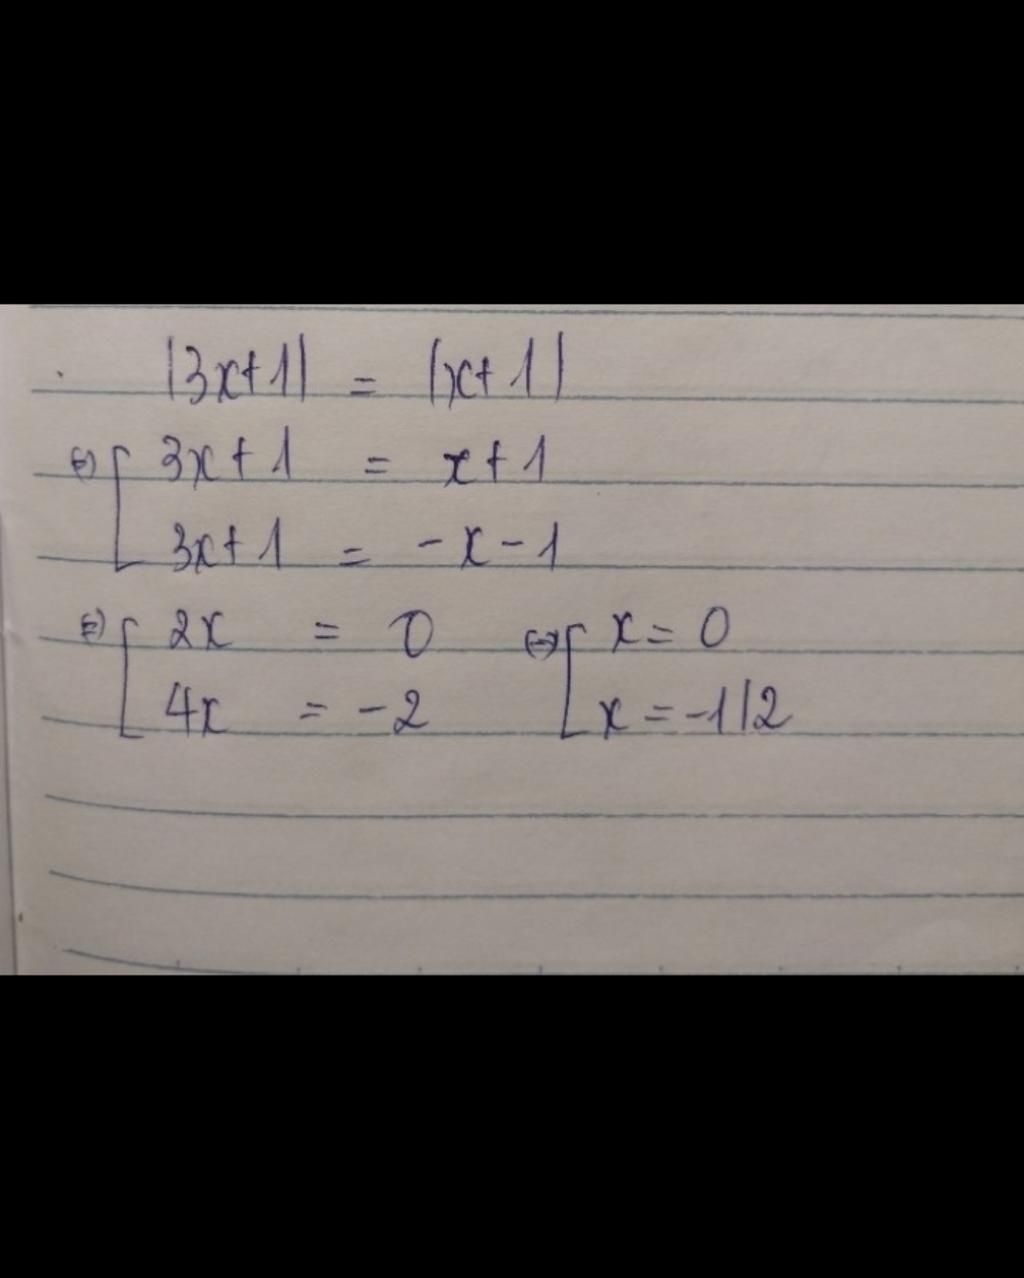 |3x+1| = |x+1|
⇔ [ 3x+1 = x+1
3x+1 = -x-1
⇔ [ 2x = 0 ⇔ [ x = 0
4x = -2 x = -1/2